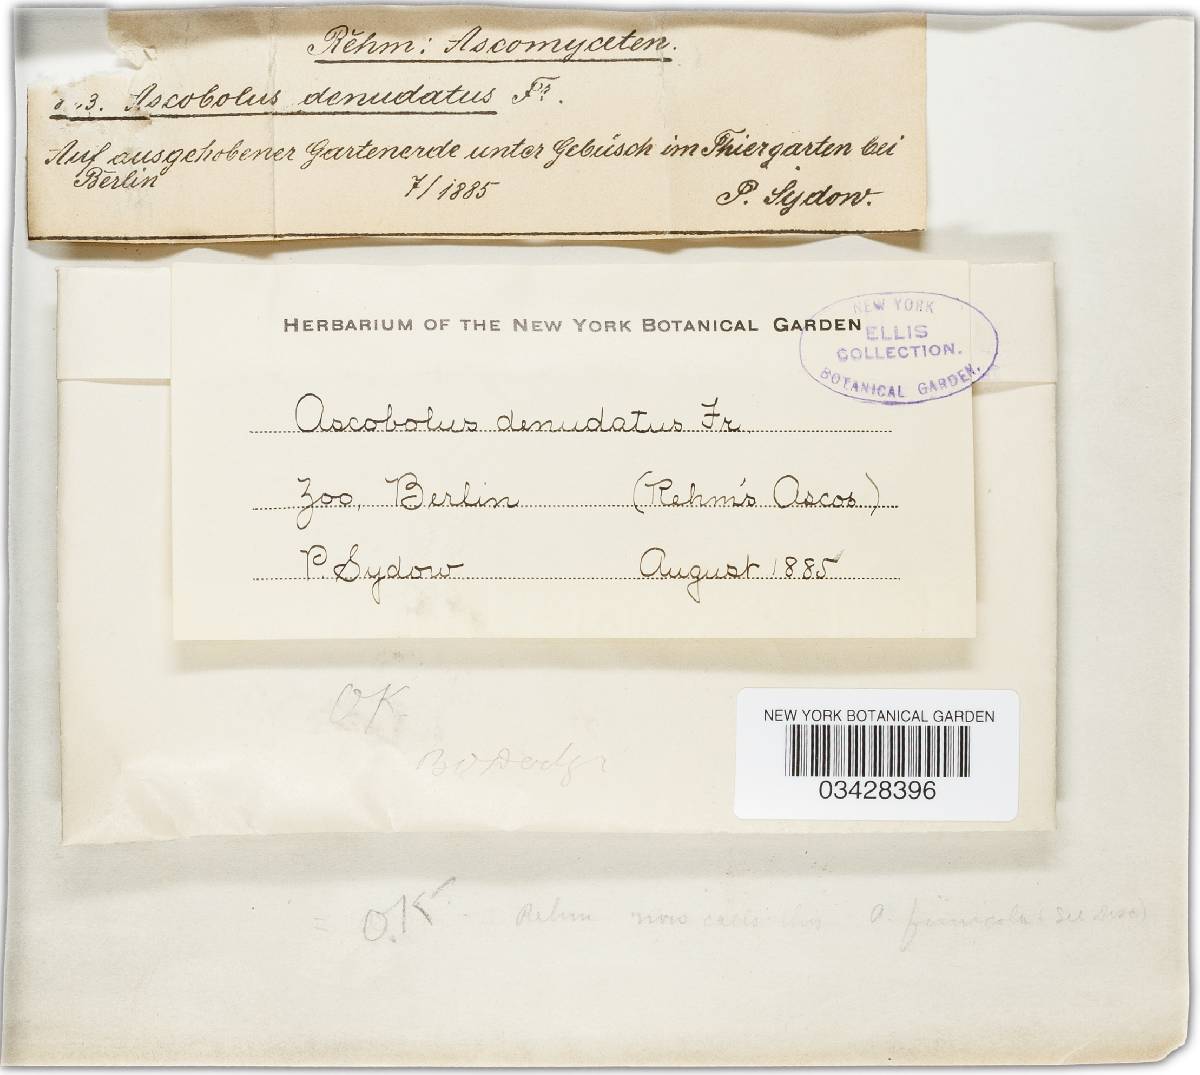 Rehm: Ascomyceten.
3. Ascobolus denudatus Fr.
Auf ausgehobener Gartenerde unter Gebüsch im Thiergarten bei
Berlin 7/1885 P. Sydow.
HERBARIUM OF THE NEW YORK BOTANICAL GARDEN
NEW YORK
ELLIS
COLLECTION.
BOTANICAL GARDEN.
Ascobolus denudatus Fr.
Zoo, Berlin (Rehm's Ascos.)
P. Sydow August 1885
O.K.
NEW YORK BOTANICAL GARDEN
03428396
= O.K. Rehm now calls this A.